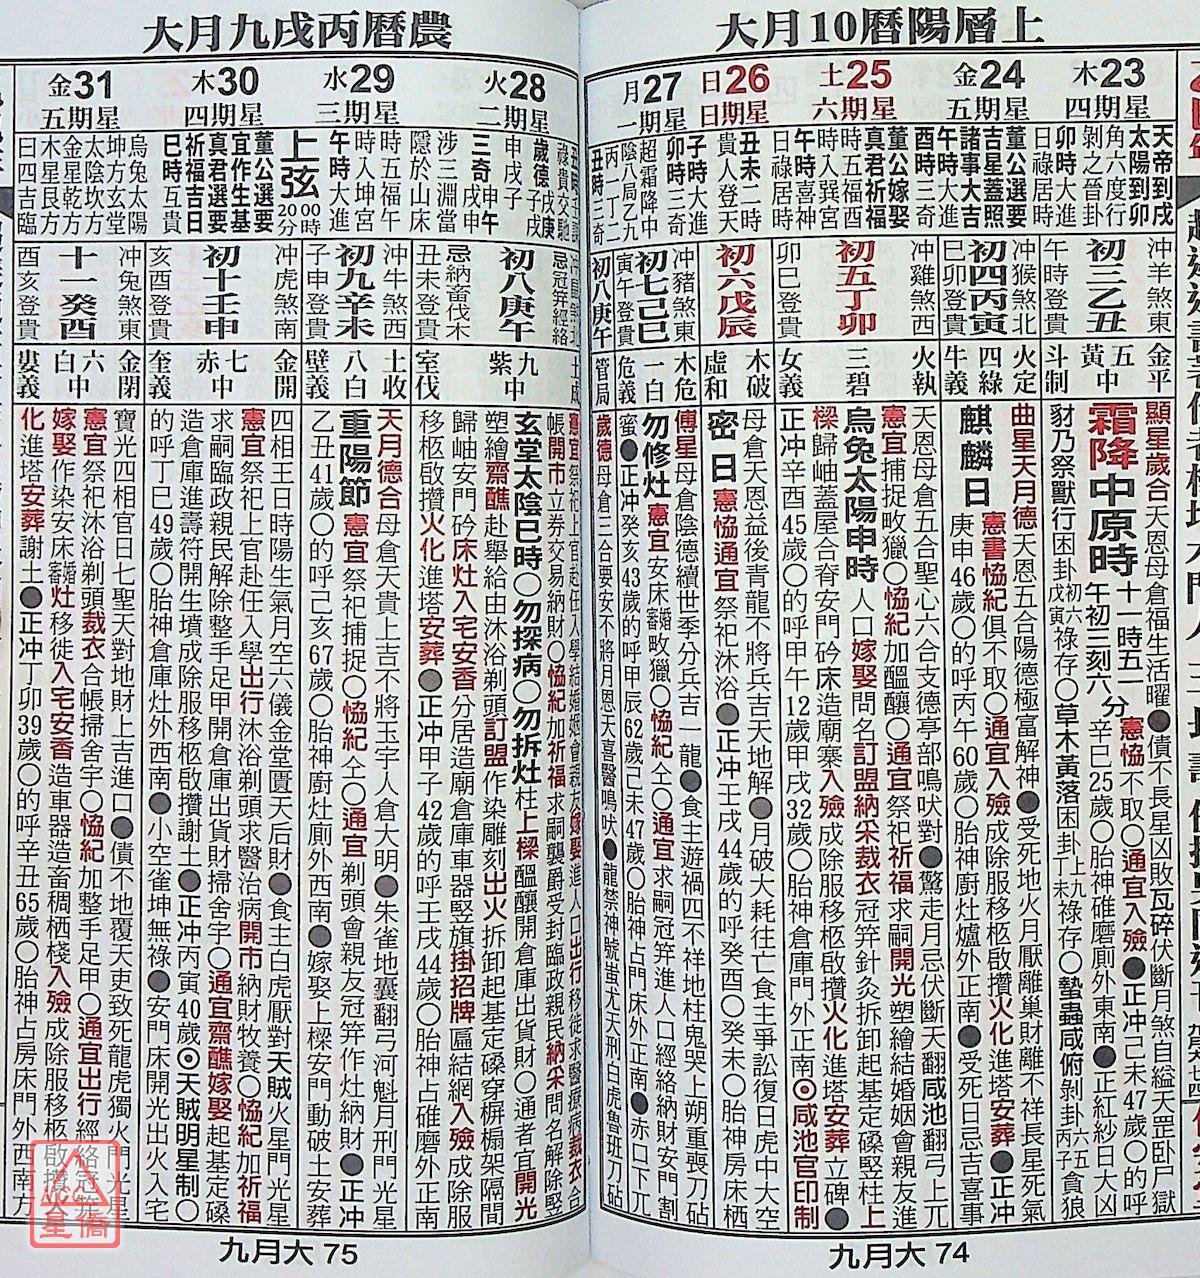 上層陽曆10月大
23木
星期四
天帝到戌
太陽到卯
角六度行
剝之晉卦
卯時大進
日祿居時
沖羊煞東
初三乙丑
午時登貴
金平
五黃中
斗制
顯星歲合天恩母倉福生活曜●債不長星凶敗瓦碎伏斷月煞自縊天罡卧尸獄
霜降中原時十一時五一分
午初三刻六
憲協不取○通宜入殮●正沖己未47歲○的呼
辛巳25歲○胎神碓磨廁外東南●正紅紗日大凶
豺乃祭獸行困卦初六戊寅祿存○草木黃落困卦上九丁未祿存○蟄蟲咸俯剝卦六五丙子貪狼
24金
星期五
董公選要
吉星蓋照
諸事大吉
酉時三奇
沖猴煞北
初四丙寅
巳卯登貴
火定
四綠
牛義
曲星天月德天恩五合陽德極富解神●受死地火月厭離巢財離不祥長星死氣
麒麟日
憲書協紀俱不取○通宜入殮成除服移柩啟攢火化進塔安葬●正沖
庚申46歲○的呼丙午60歲○胎神廚灶爐外正南●受死日忌吉喜事
25土
星期六
董公嫁娶
真君祈福
時五福酉
時入巽宮
午時喜神
沖雞煞西
初五丁卯
卯巳登貴
火執
三碧
女義
天恩母倉五合聖心六合支德亭部鳴吠對●驚走月忌伏斷天翻咸池翻弓上兀
憲宜捕捉畋獵○協紀加醞釀○通宜祭祀祈福求嗣開光塑繪結婚姻會親友進
烏兔太陽申時
人口嫁娶問名訂盟納采裁衣冠笄針灸拆卸起基定磉竪柱上
樑歸岫蓋屋合脊安門砛床造廟寨入殮成除服移柩啟攢火化進塔安葬立碑●
正沖辛酉45歲○的呼甲午12歲甲戌32歲○胎神倉庫門外正南◎咸池官印制
26日
星期日
丑未二時
貴人登天
初六戊辰
木破
虛和
母倉天恩益後青龍不將兵吉天地解●月破大耗往亡食主爭訟復日虎中大空
密日
憲協通宜祭祀沐浴●正沖壬戌44歲的呼癸酉○癸未○胎神房床栖
27月
星期一
子時大進
卯時三奇
超霜降中
陰八局乙九
丙一丁二
丑時三奇
沖豬煞東
初七己巳
寅午登貴
初八庚午
木危
一白
危義
管局
傅星母倉陰德續世季分兵吉一龍●食主遊禍四不祥地柱鬼哭上朔重喪刀砧
勿修灶
憲宜安床審婚畋獵○協紀仝○通宜求嗣冠笄進人口經絡納財安床
蜜●正沖癸亥43歲的呼甲辰62歲己未47歲○胎神占門床外正南●赤口下兀
歲德母倉三合要安不將月恩天喜醫鳴吠●龍禁神號蚩尤天刑白虎魯班刀砧
九月大 74
農曆丙戌九月大
28火
星期二
歲德戌庚
申戌子
三奇
涉三淵當
隱於山床
忌冠笄經絡
初八庚午
忌納畜伐木
丑未登貴
土成
九紫中
室伐
憲宜祭祀上官赴任入學結婚姻會親友嫁娶進人口出行移徙求醫療病裁衣合
帳開市立券交易納財○協紀加祈福求嗣襲爵受封臨政親民納采問名解除竪
玄堂太陰巳時○勿探病○勿拆灶
柱上樑醞釀開倉庫出貨財○通者宜開光
塑繪齋醮赴舉給由沐浴剃頭訂盟作染雕刻出火拆卸起基定磉穿榍扇架隔間
歸岫安門砛床灶入宅安香分居造廟倉庫車器竪旗掛招牌匾結網入殮成除服
移柩啟攢火化進塔安葬●正沖甲子42歲的呼壬戌44歲○胎神占碓磨外正南
29水
星期三
時五福午
時入坤宮
午時大進
沖牛煞西
初九辛未
子申登貴
土收
八白
壁義
天月德合母倉天貴上吉不將玉宇人倉大明●朱雀地囊翻弓河魁月刑門光星
重陽節
憲宜祭祀捕捉○協紀仝○通宜剃頭會親友冠笄作灶納財●正沖
乙丑41歲○的呼己亥67歲○胎神廚灶廁外西南●嫁娶上樑安門動破土安葬
30木
星期四
董公選要
宜作生基
真君選要
祈福吉日
巳時互貴
上弦00時20分
沖虎煞南
初十壬申
亥酉登貴
金開
七赤中
奎義
四相王日時陽生氣月空六儀金堂匱天后財●食主白虎厭對天賊火星門光星
憲宜祭祀上官赴任入學出行沐浴剃頭求醫治病開市納財牧養○協紀加祈福
求嗣臨政親民解除整手足甲開倉庫出貨財掃舍宇○通宜齋醮嫁娶起基定磉
造倉庫進壽符開生墳成除服移柩啟攢謝土●正沖丙寅40歲◎天賊明星制○
的呼丁巳49歲○胎神倉庫灶外西南●小空雀坤無祿●安門床開光出火入宅
31金
星期五
烏兔太陽
坤方玄堂
太陰坎方
金星乾方
木星艮方
日四吉臨
沖兔煞東
十一癸酉
酉亥登貴
金閉
六白中
婁義
寶光四相官日七聖天對地財上吉進口●債不地覆天吏致死龍虎獨火門光星
憲宜祭祀沐浴剃頭裁衣合帳掃舍宇○協紀加整手足甲○通宜出行經絡冠笄
嫁娶作染安床審婚灶移徙入宅安香造車器造畜稠栖棧入殮成除服移柩啟攢火
化進塔安葬謝土●正沖丁卯39歲○的呼辛丑65歲○胎神占房床門外西南方
九月大 75